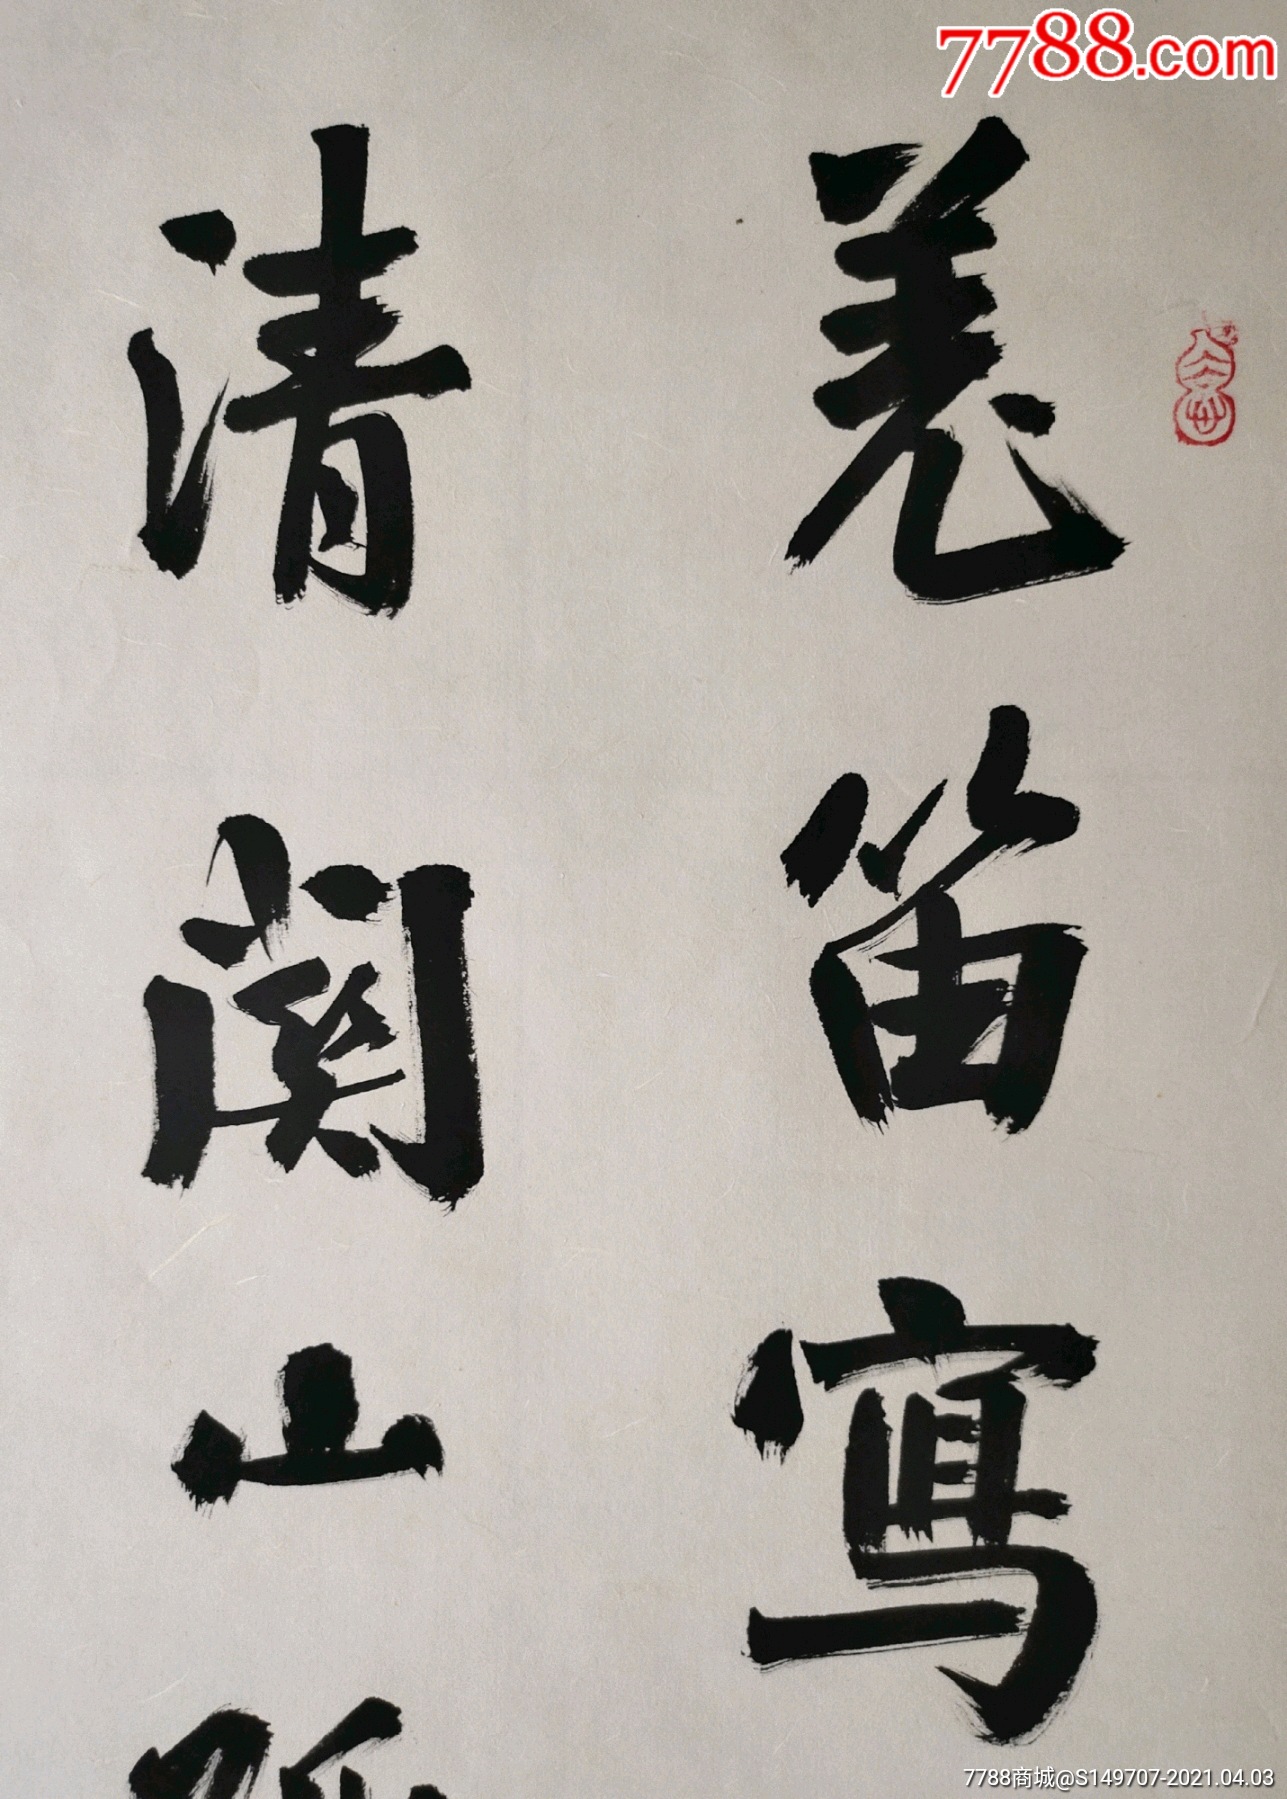 7788.com
羌笛寫
清関山
7788商城@S149707-2021.04.03